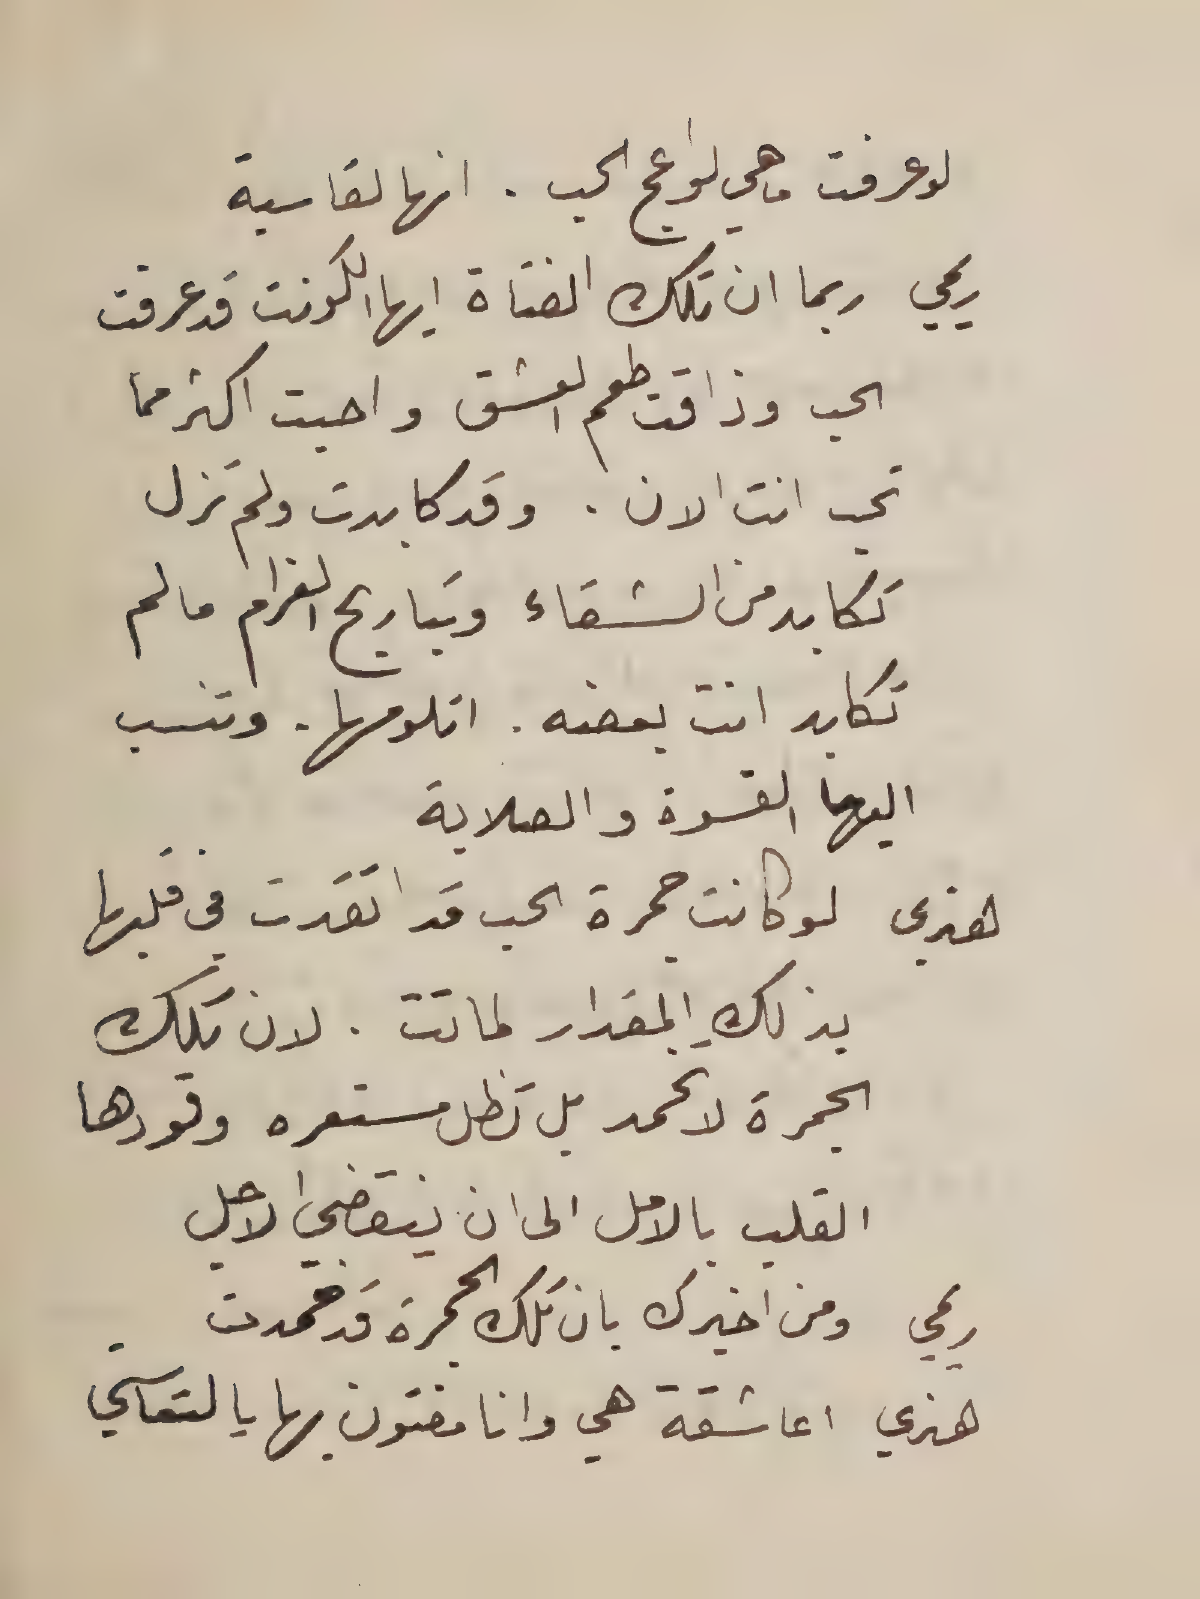 لو عرفت ما هي لواعج الحب . انها لقاسية
ريمي ربما ان تلك الفتاة ايها الكونت قد عرفت
الحب وذاقت طعم العشق واحبت اكثر مما
تحب انت الان . وقد كابدت ولم تزل
تكابد من الشقاء وتباريح الغرام ما لم
تكابد انت بعضه . اتلومها . وتنسب
اليها القسوة والصلابة
هنري لو كانت جمرة الحب قد اتقدت في قلبها
بذلك المقدار لماتت . لان تلك
الجمرة لا تخمد بل تظل مستعره وقودها
القلب بالامل الى ان ينقضي الاجل
ريمي ومن اخبرك بان تلك الجمرة قد خمدت
هنري اعاشقة هي وانا مفتون بها يا لتعاستي